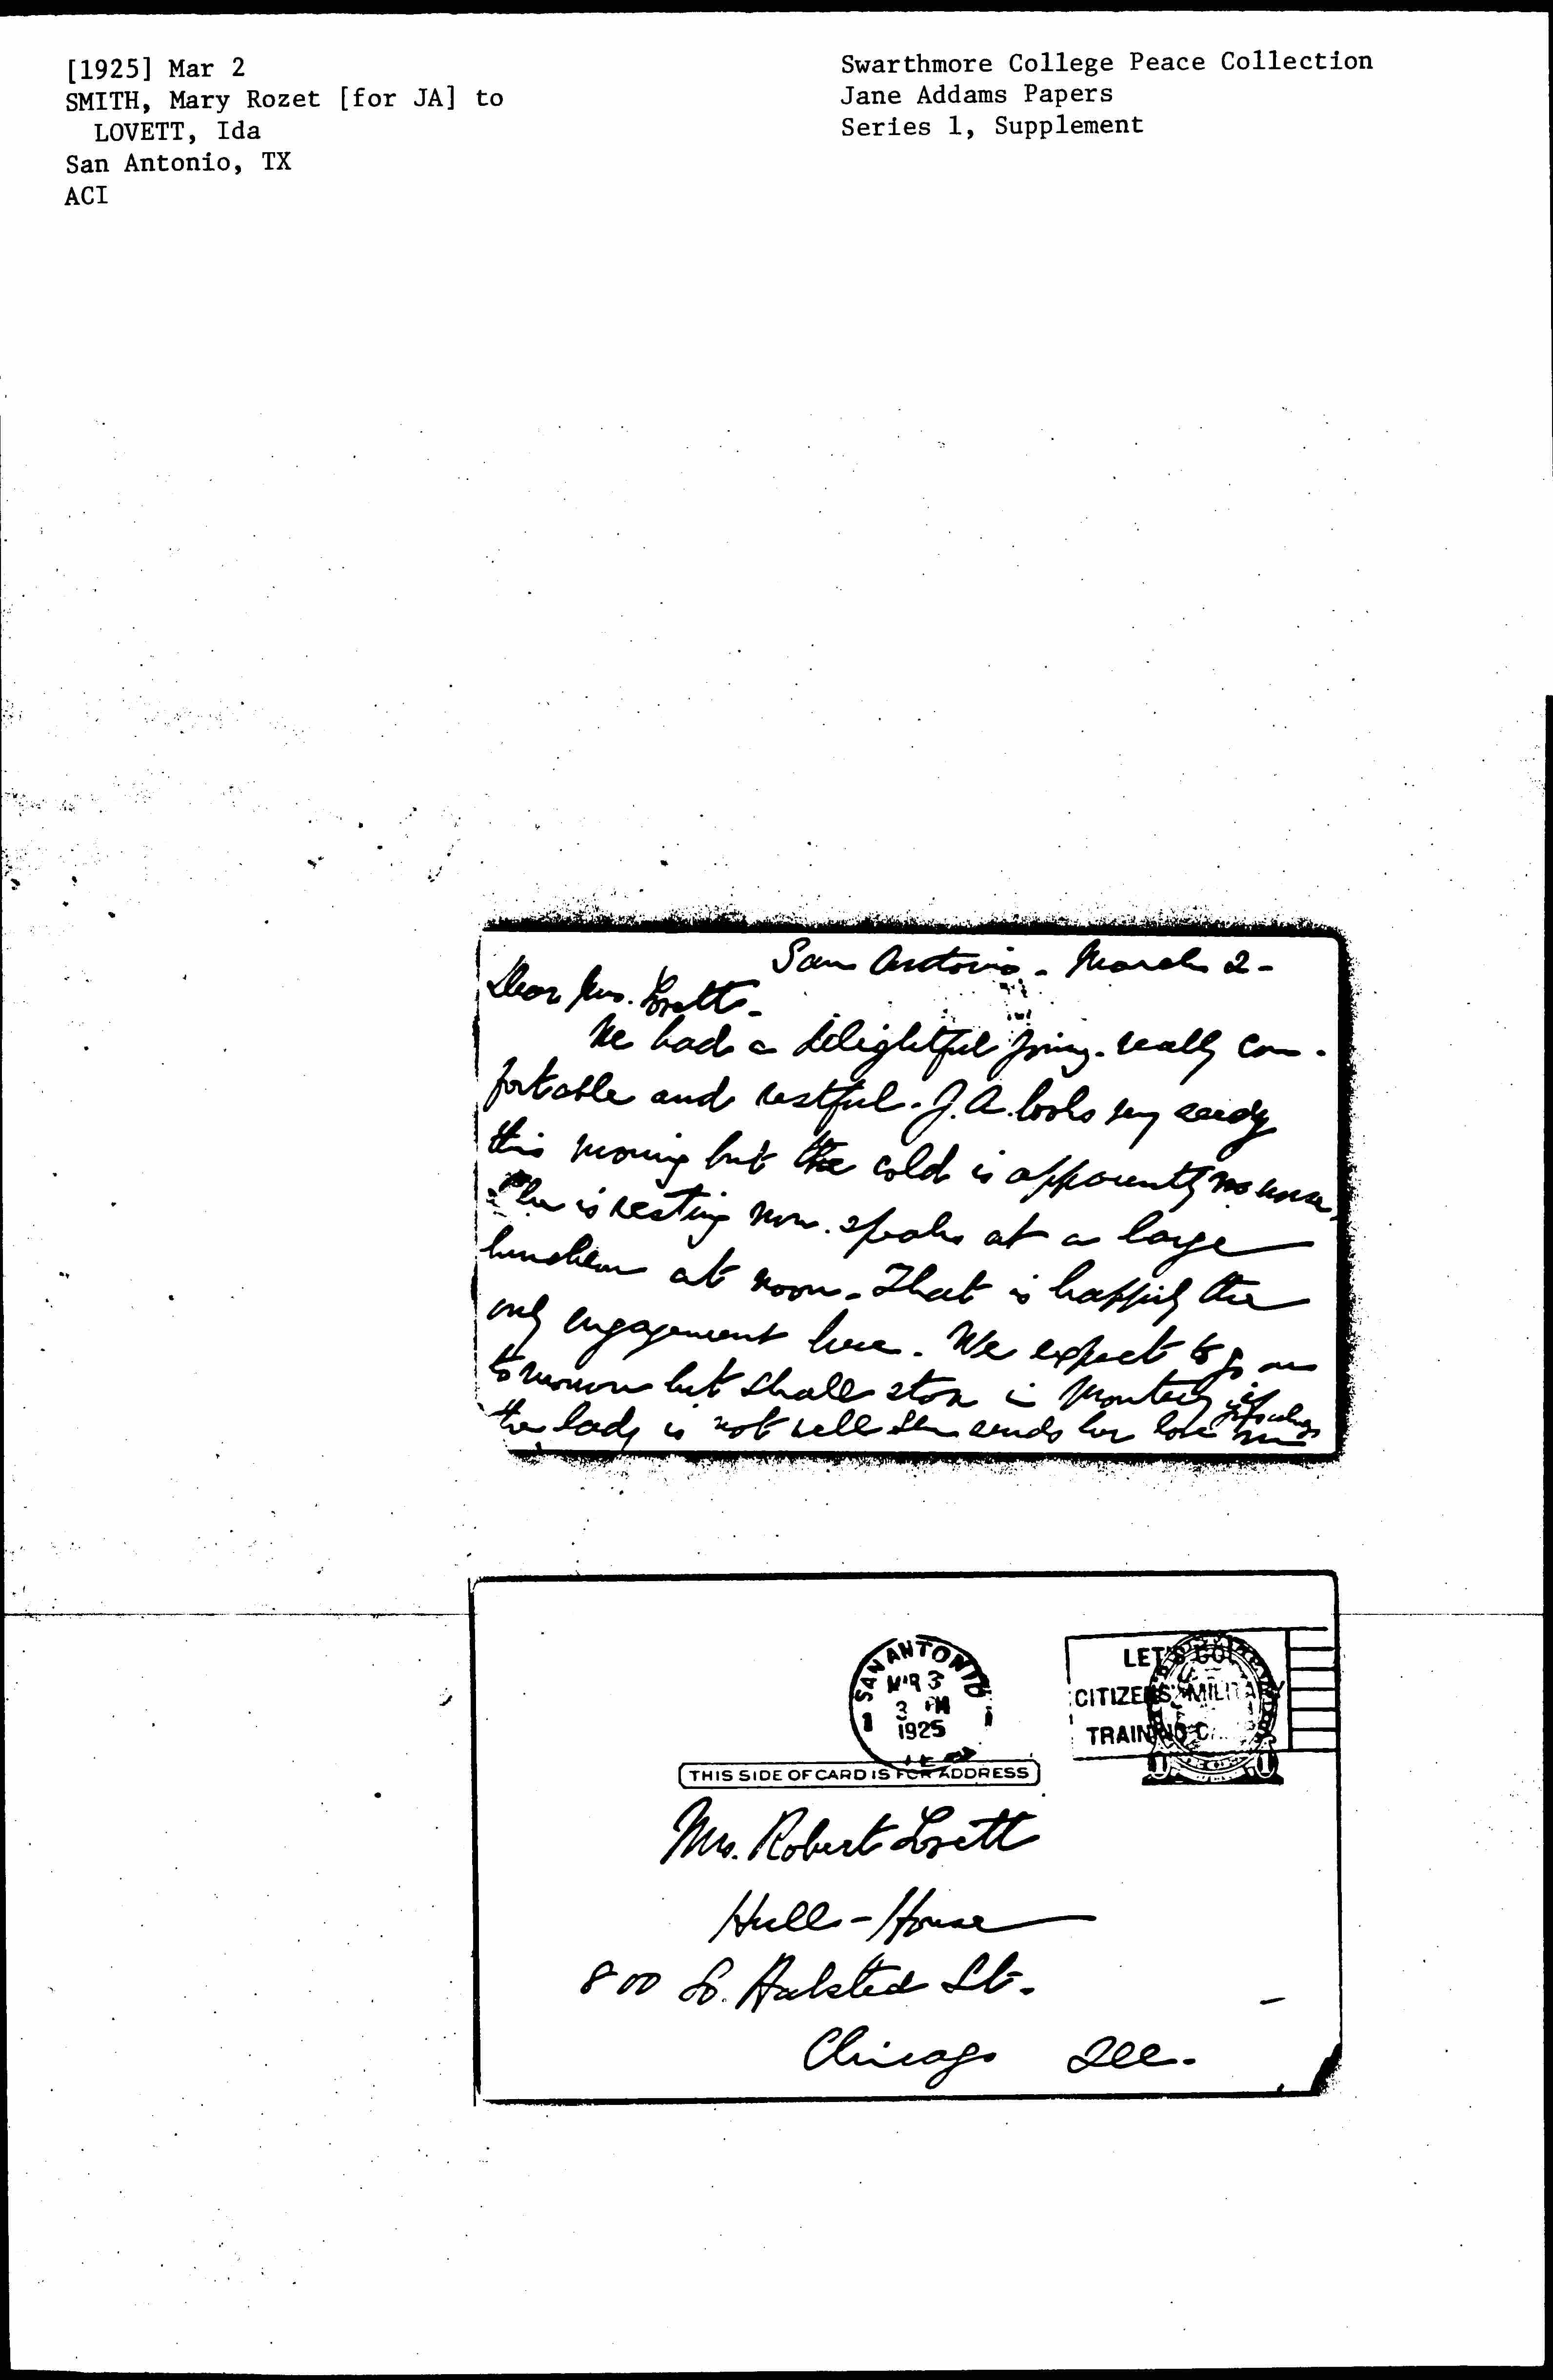 [1925] Mar 2
SMITH, Mary Rozet [for JA] to
LOVETT, Ida
San Antonio, TX
ACI
Swarthmore College Peace Collection
Jane Addams Papers
Series 1, Supplement
San Antonio - March 2 -
Dear Mrs. Lovett -
We had a delightful journey. really com-
fortable and restful. J.A. looks very seedy
this morning but the cold is apparently no worse.
She is resting now. speaks at a large
luncheon at noon - That is happily the
only engagement here. We expect to go on
tomorrow but shall stop in Monterey if
the lady is not well She sends her love
SAN ANTONIO
MAR 3
3 PM
1925
LET'S GO!
CITIZENS' MILITARY
TRAINING CAMPS
THIS SIDE OF CARD IS FOR ADDRESS
Mrs. Robert Lovett
Hull-House
800 So. Halsted St.
Chicago Ill.